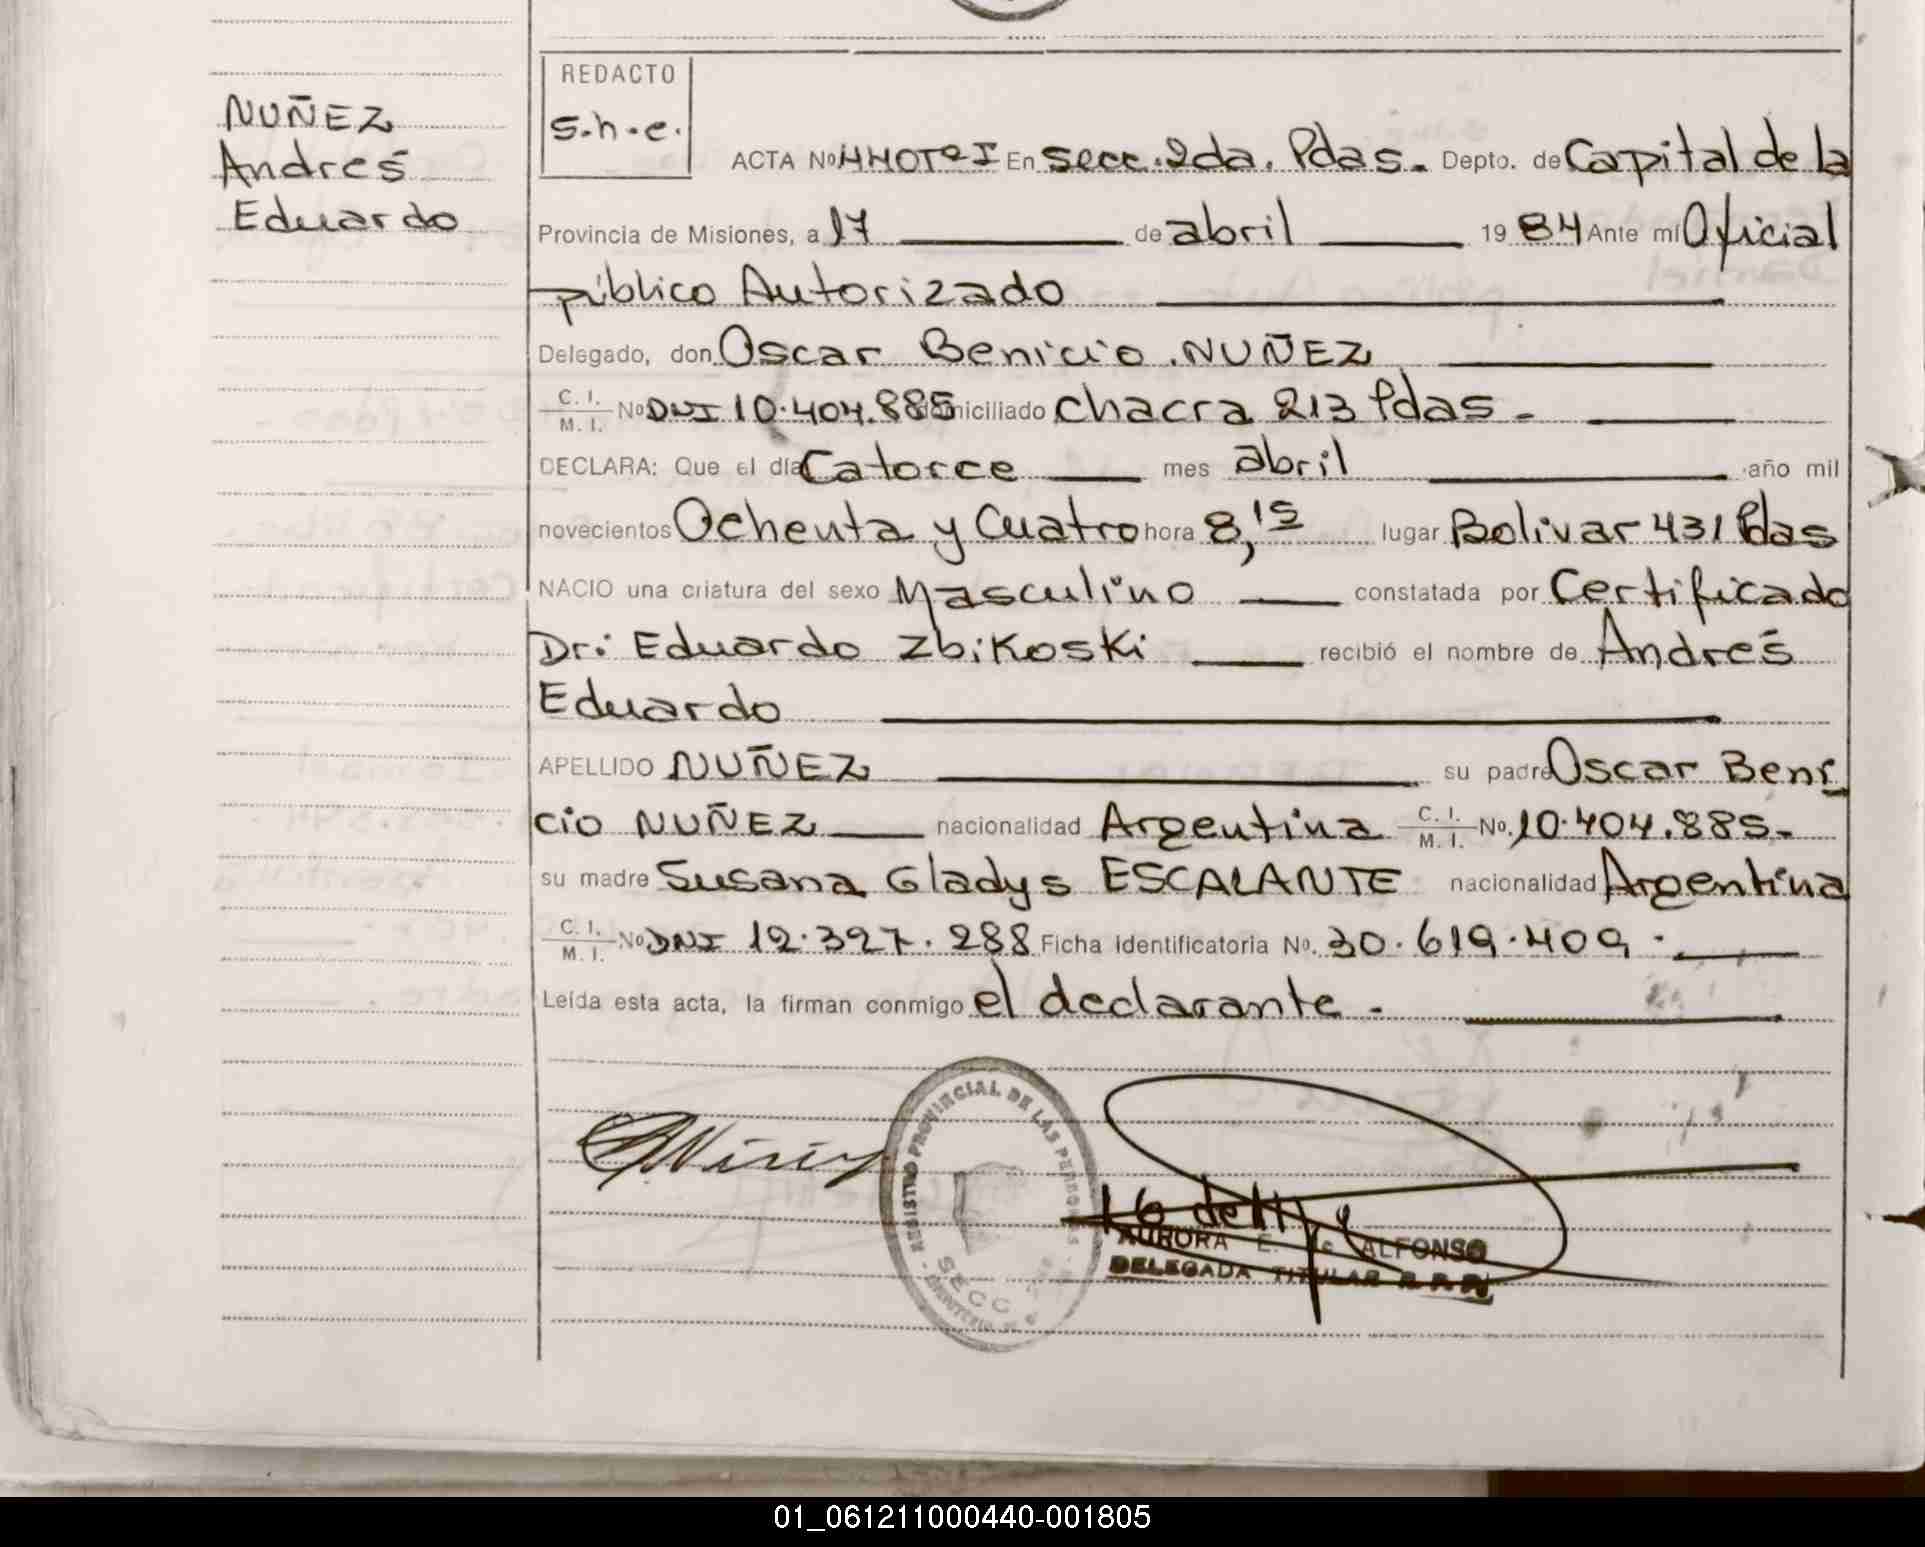 NUÑEZ
Andrés
Eduardo
REDACTO
s.h.e.
ACTA Nº 440 Tº I En Secc. 2da. Pdas. Depto. de Capital de la
Provincia de Misiones, a 17 de abril 1984 Ante mí Oficial
público Autorizado
Delegado, don Oscar Benicio NUÑEZ
C. I.
M. I. Nº DNI 10.404.885 domiciliado chacra 213 Pdas.
DECLARA: Que el día Catorce mes abril año mil
novecientos Ochenta y Cuatro hora 8,15 lugar Bolivar 431 Pdas
NACIO una criatura del sexo Masculino constatada por Certificado
Dr: Eduardo Zbikoski recibió el nombre de Andrés
Eduardo
APELLIDO NUÑEZ su padre Oscar Beni
cio NUÑEZ nacionalidad Argentina C. I. M. I. Nº. 10.404.885.-
su madre Susana Gladys ESCALANTE nacionalidad Argentina
C. I.
M. I. Nº DNI 12.327.288 Ficha Identificatoria Nº. 30.619.409.
Leída esta acta, la firman conmigo el declarante.-
REGISTRO PROVINCIAL DE LAS PERSONAS
SECC
AURORA E. ALFONSO
DELEGADA TITULAR R.P.P.
01_061211000440-001805